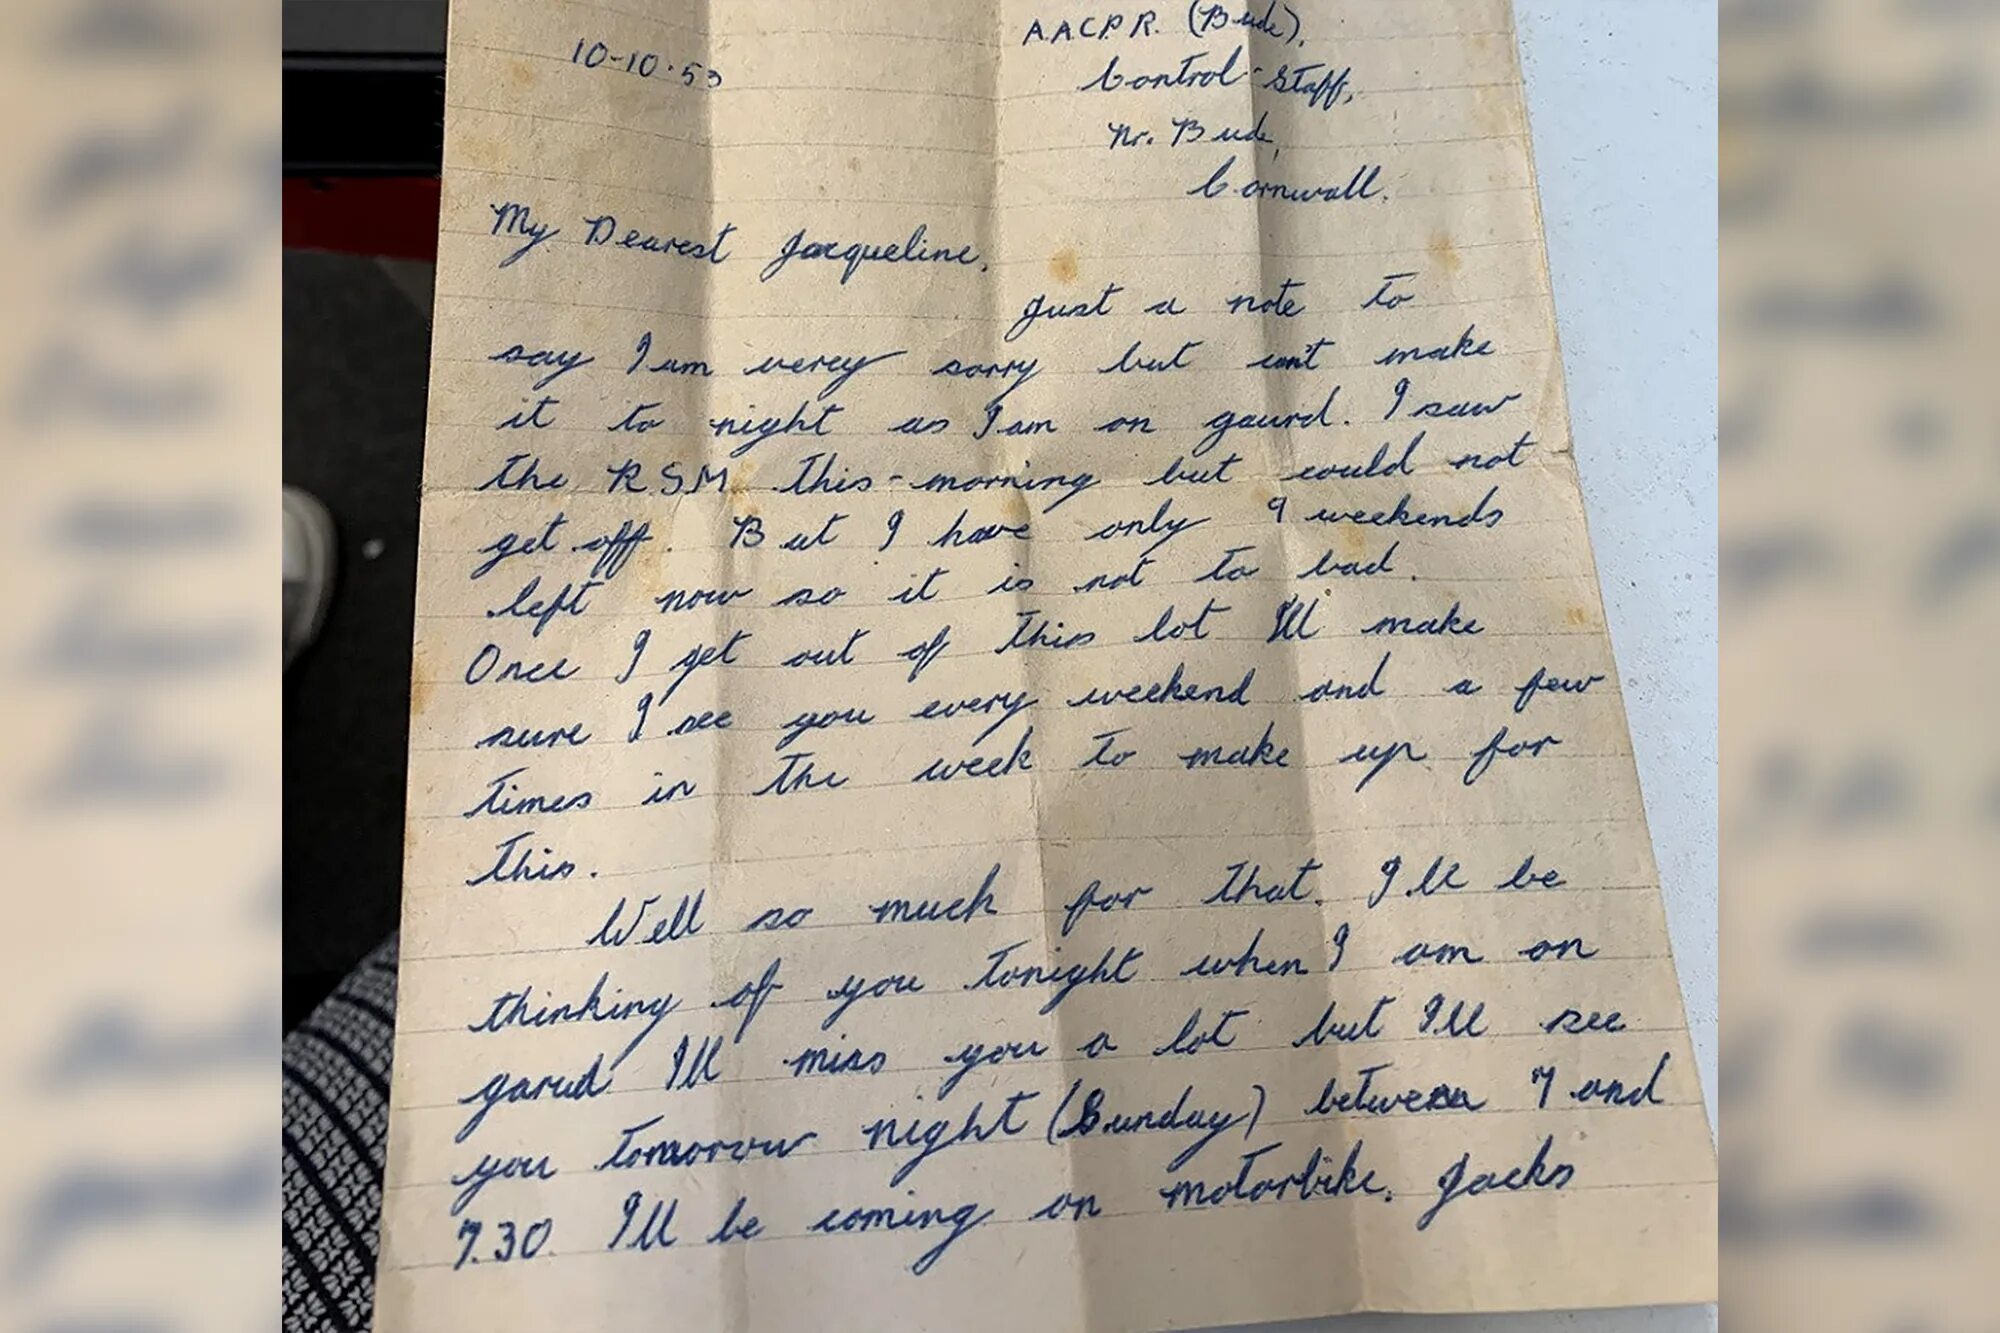 A.A.C.P.R. (Bude),
10-10-53
Control-Staff,
Nr. Bude,
Cornwall.
My Dearest Jacqueline,
Just a note to
say I am verey sorry but can't make
it to night as I am on gaurd. I saw
the R.S.M. this-morning but could not
get off. But I have only 9 weekends
left now so it is not to bad.
Once I get out of this lot I'll make
sure I see you every weekend and a few
times in the week to make up for
this.
Well so much for that. I'll be
thinking of you tonight when I am on
garud I'll miss you a lot but I'll see
you tomorrow night (Sunday) between 7 and
7.30. I'll be coming on motorbike. Jacks